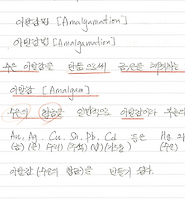 아말감법 [Amalgamation]
아말감법 [Amalgamation]
수은 아말감을 만듦으로써 금,은을 제련하는
아말감 [Amalgam]
수은과 합금을 일반적으로 아말감이라 부른다
Au, Ag, Cu, Sn, Pb, Cd 등은 Hg 와
(금) (은) (구리) (주석) (납) (카드뮴) (수은)
아말감 (수은의 합금)을 만들기 쉽다.